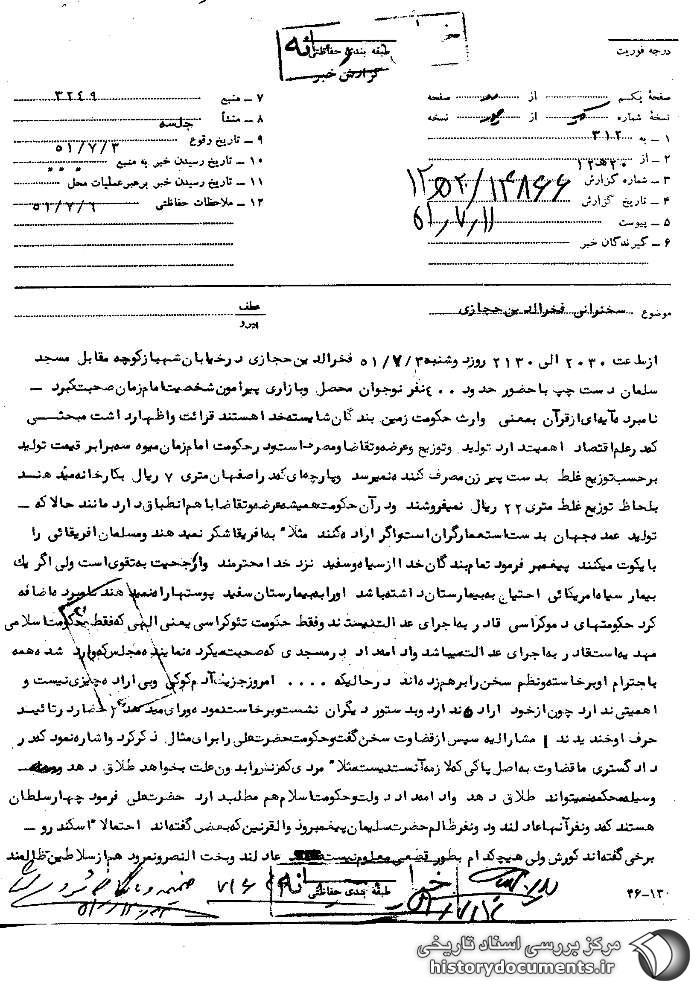 خیلی محرمانه
طبقه بندی حفاظتی
گزارش خبر
درجه فوریت
صفحهٔ یکم از صفحه
نسخهٔ شماره از نسخه
۱ ـ به ۳۱۲
۲ ـ از ۲۰ ه ۱۲
۳ ـ شماره گزارش ۱۴۸۶۶/۲۰ ه ۱۲
۴ ـ تاریخ گزارش ۵۱/۷/۱۱
۵ ـ پیوست
۶ ـ گیرندگان خبر
۷ ـ منبع ۳۲۴۹
۸ ـ منشأ جلسه
۹ ـ تاریخ وقوع ۵۱/۷/۳
۱۰ ـ تاریخ رسیدن خبر به منبع
۱۱ ـ تاریخ رسیدن خبر برهبرعملیات محل
۱۲ ـ ملاحظات حفاظتی ۵۱/۷/۶
موضوع سخنرانی فخرالدین حجازی
عطف
پیرو
ازساعت ۲۰۳۰ الی ۲۱۳۰ روز دوشنبه ۵۱/۷/۳ فخرالدین حجازی در خیابان شهباز کوچه مقابل مسجد
سلمان دست چپ با حضور حدود ۴۰۰ نفر نوجوان محصل و بازاری پیرامون شخصیت امام زمان صحبت کرد ـ
نامبرده آیه‌ای از قرآن بمعنی وارث حکومت زمین بندگان شایسته خدا هستند قرائت و اظهار داشت مبحثی
که در علم اقتصاد اهمیت دارد تولید و توزیع و عرضه و تقاضا و مصرف است در حکومت امام زمان میوه سه برابر قیمت تولید
برحسب توزیع غلط بدست پیرزن مصرف کننده نمیرسد و پارچه‌ای که در اصفهان متری ۷ ریال بکارخانه میدهند
بلحاظ توزیع غلط متری ۲۲ ریال نمیفروشند و در آن حکومت همیشه عرضه و تقاضا با هم انطباق دارد مانند حالا که ـ
تولید عمده جهان بدست استعمارگران است و اگر اراده کنند مثلا" به افریقا شکر نمیدهند و مسلمان افریقائی را
بایکوت میکنند پیغمبر فرمود تمام بندگان خدا از سیاه و سفید نزد خدا محترمند و ارجحیت به تقوی است ولی اگر یک
بیمار سیاه امریکائی احتیاج به بیمارستان داشته باشد او را به بیمارستان سفید پوستها راه نمیدهند نامبرده اضافه
کرد حکومتهای دموکراسی قادر به اجرای عدالت نیستند و فقط حکومت تئوکراسی یعنی الهی که فقط حکومت اسلامی
مهدیه است قادر به اجرای عدالت میباشد و ادامه داد در مسجدی که صحبت میکرده نماینده مجلس که وارد شده همه
باحترام او برخاسته و نظم سخن را برهم زده‌اند در حالیکه .... امروز جز یک آدم کوکی و بی اراده چیزی نیست و
اهمیتی ندارد چون از خود اراده ندارد و بدستور دیگران نشست و برخاست نموده و رای میدهد (حضار در تائید
حرف او خندیدند) مشارالیه سپس از قضاوت سخن گفت و حکومت حضرت علی را برای مثال ذکر کرد و اشاره نمود که در
دادگستری ما قضاوت به اصل پاکی که لازمه آنست نیست مثلا" مردی که زنش را بدون علت بخواهد طلاق دهد
وسیله محکمه نمیتواند طلاق دهد و ادامه داد دولت و حکومت اسلام هم مطلب دارد حضرت علی فرمود چهار سلطان
هستند که دو نفر آنها عادلند و دو نفر ظالم حضرت سلیمان پیغمبر و ذوالقرنین که بعضی گفته‌اند احتمالا" اسکندر و ـ
برخی گفته‌اند کورش ولی هیچکدام بطور قطعی معلوم نیست عادلند و بخت النصر و نمرود هم از سلاطین ظالمند
خیلی محرمانه
طبقه بندی حفاظتی
۴۶-۱۳۰
مرکز بررسی اسناد تاریخی
historydocuments.ir